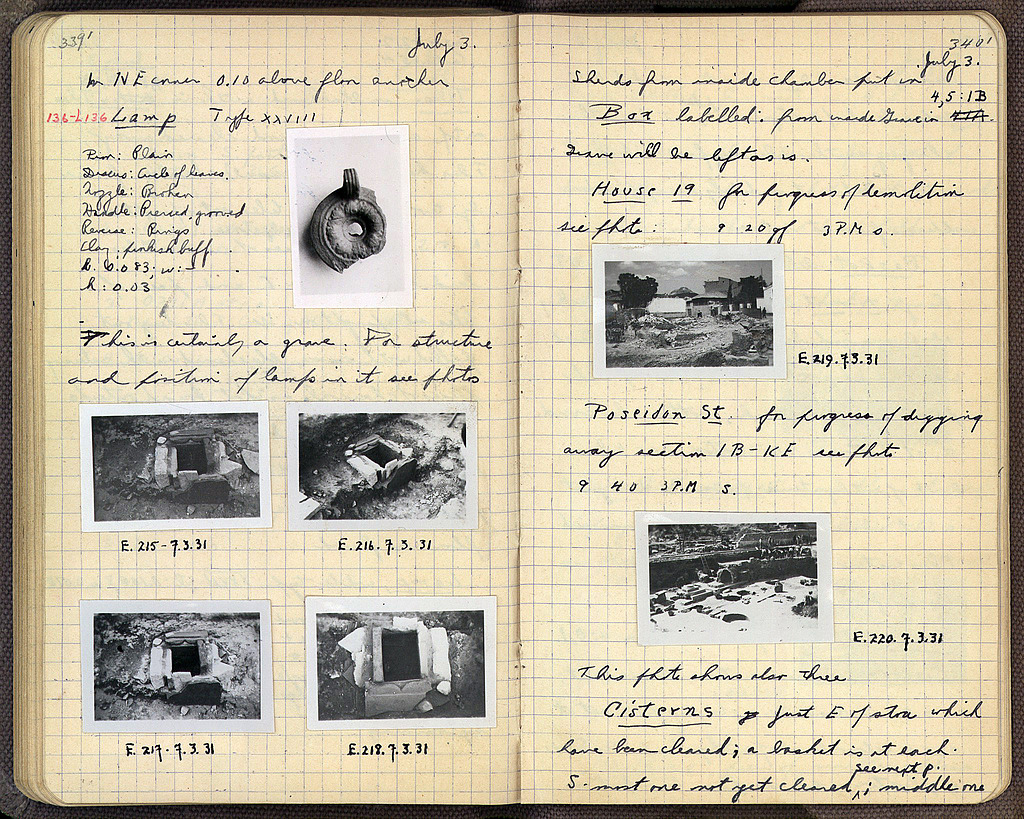 339'
July 3.
In NE corner 0.10 above floor another
136-L136 Lamp Type XXVIII
Rim: Plain
Discus: Circle of leaves.
Nozzle: Broken
Handle: Pierced, grooved
Reverse: Rings
Clay: pinkish buff
L. 0.083; w: -
h: 0.03
This is certainly a grave. For structure
and position of lamps in it see photos
E. 215-7.3.31
E. 216.7.3.31
E. 217.7.3.31
E. 218.7.3.31
340'
July 3.
Sherds from inside chamber put in
4,5:IB
Box labelled: from inside Grave in
Grave will be left as is.
House 19 for progress of demolition
see photo: 9 20 of 3 P.M s.
E. 219.7.3.31
Poseidon St. for progress of digging
away section IB-KE see photo
9 40 3 P.M s.
E. 220.7.3.31
This photo shows also three
Cisterns just E of stoa which
have been cleared; a basket is at each.
see next p.
S. most one not yet cleared; middle one